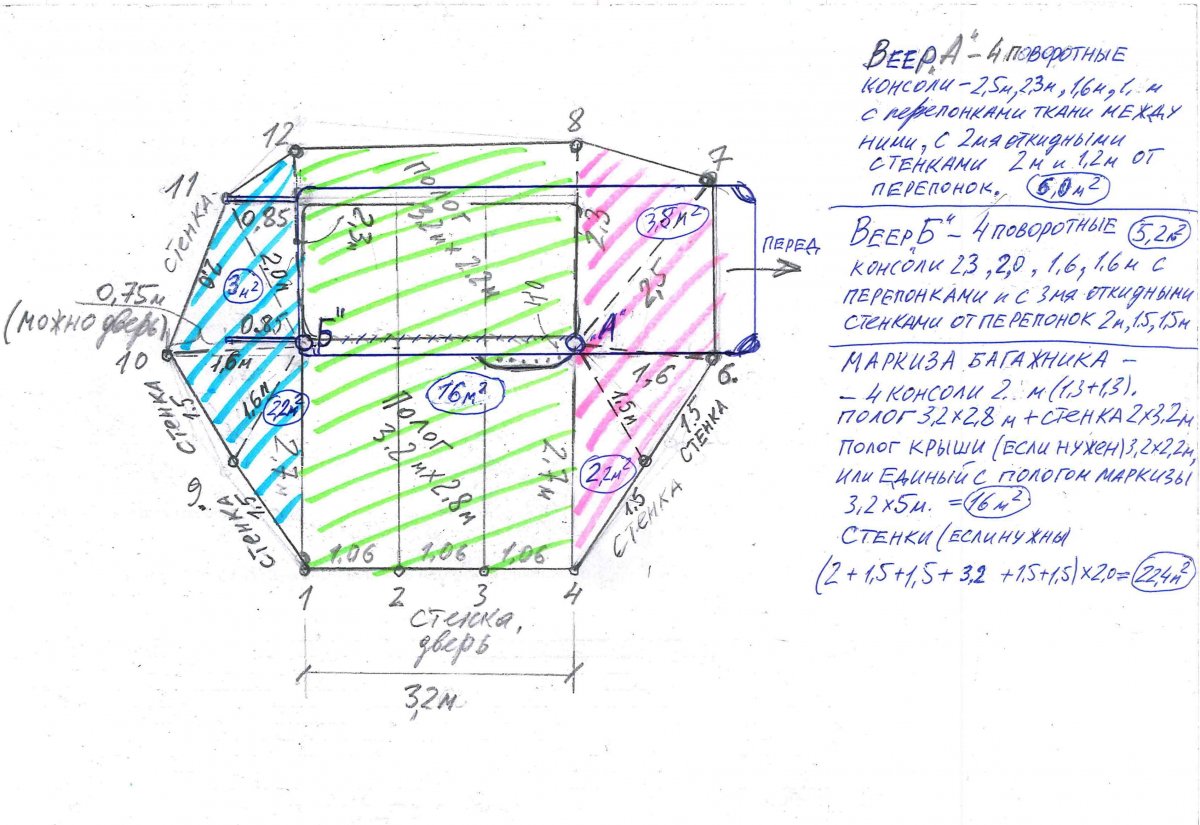 12
8
7
11
СТЕНКА
2.0
0.85
2.0м
3м²
2,3м
ПОЛОГ
3,2м × 2.2м
2.3
3,8м²
2,5
ПЕРЕД
0,75м
(МОЖНО ДВЕРЬ)
0.85
„Б"
„А"
10
1,6м
1,6м
22м²
2.7м
16м²
ПОЛОГ
3.2м × 2.8м
2.7м
1,6
6.
1.5м
1.5
СТЕНКА
2.2м²
1.5
СТЕНКА
СТЕНКА
1.5
9
СТЕНКА
1,5
1,06
1,06
1,06
1
2
3
4
СТЕНКА,
ДВЕРЬ
3,2м
ВЕЕР „А" – 4 ПОВОРОТНЫЕ
КОНСОЛИ – 2,5м, 2,3м, 1,6м, 1, м
С ПЕРЕПОНКАМИ ТКАНИ МЕЖДУ
НИМИ, С 2МЯ ОТКИДНЫМИ
СТЕНКАМИ 2м И 1,2м ОТ
ПЕРЕПОНОК. 6,0м²
ВЕЕР „Б" – 4 ПОВОРОТНЫЕ 5,2м²
КОНСОЛИ 2,3, 2,0, 1,6, 1.6м С
ПЕРЕПОНКАМИ И С 3МЯ ОТКИДНЫМИ
СТЕНКАМИ ОТ ПЕРЕПОНОК 2м, 1.5, 1,5м
МАРКИЗА БАГАЖНИКА –
– 4 КОНСОЛИ 2. м (1,3+1,3).
ПОЛОГ 3,2×2,8 м + СТЕНКА 2×3,2м
ПОЛОГ КРЫШИ (ЕСЛИ НУЖЕН) 3,2×2,2м,
ИЛИ ЕДИНЫЙ С ПОЛОГОМ МАРКИЗЫ
3,2×5м. = 16м²
СТЕНКИ (ЕСЛИ НУЖНЫ
(2+1,5+1,5+3,2 +1,5+1,5)×2,0= 22,4м²